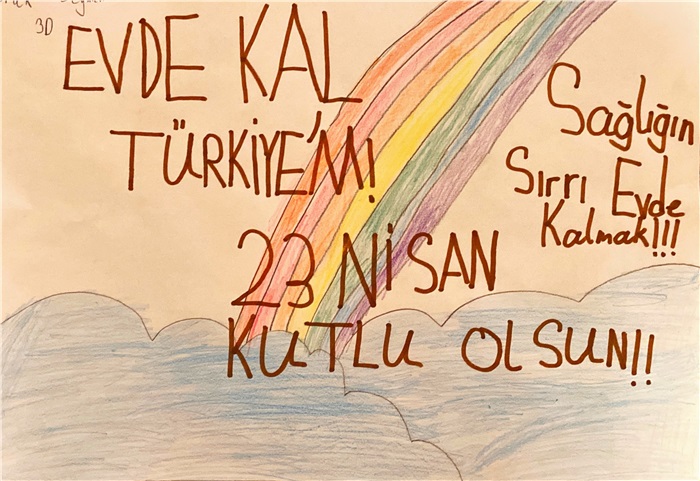 3D
EVDE KAL
TÜRKİYE'M!
23 NİSAN
KUTLU OLSUN!!
Sağlığın
Sırrı Evde
Kalmak!!!